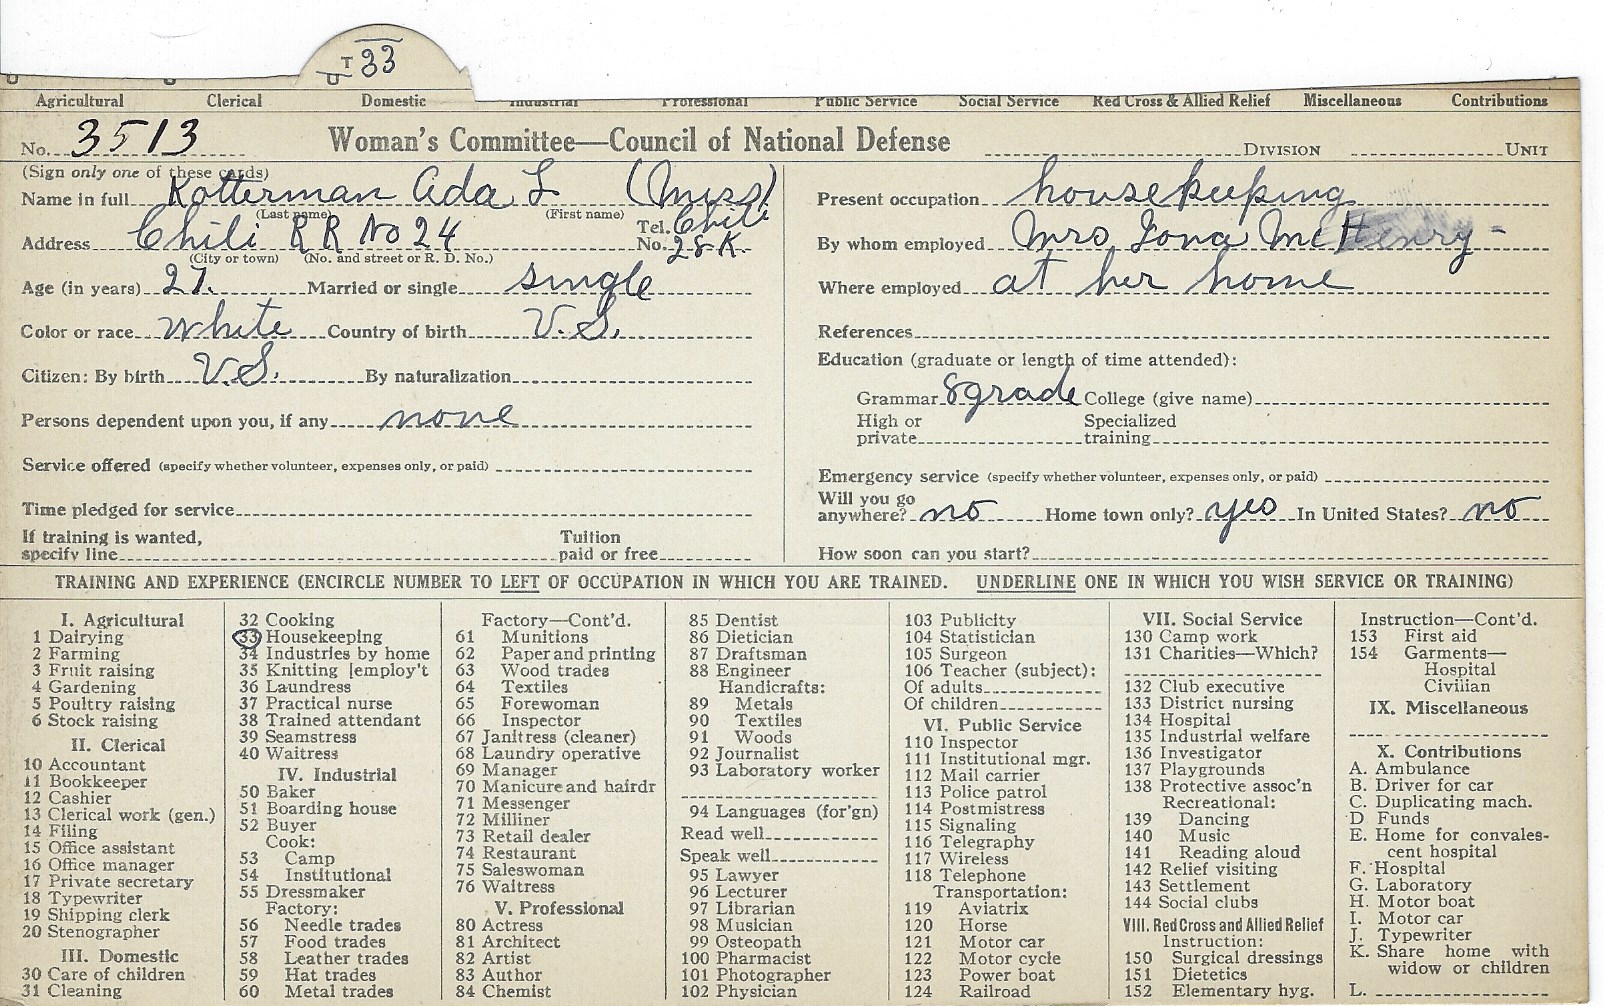 T 33
Agricultural Clerical Domestic Industrial Professional Public Service Social Service Red Cross & Allied Relief Miscellaneous Contributions
No. 3513 Woman's Committee—Council of National Defense DIVISION UNIT
(Sign only one of these cards)
Name in full Kotterman Ada L (Miss)
(Last name) (First name)
Address Chili RR No 24 Tel. No. Chili 28-K.
(City or town) (No. and street or R. D. No.)
Age (in years) 27. Married or single single
Color or race white Country of birth U.S.
Citizen: By birth U.S. By naturalization
Persons dependent upon you, if any none
Service offered (specify whether volunteer, expenses only, or paid)
Time pledged for service
If training is wanted, specify line Tuition paid or free
Present occupation housekeeping
By whom employed Mrs Iona McHenry-
Where employed at her home
References
Education (graduate or length of time attended):
Grammar 8 grade College (give name)
High or private Specialized training
Emergency service (specify whether volunteer, expenses only, or paid)
Will you go anywhere? no Home town only? yes In United States? no
How soon can you start?
TRAINING AND EXPERIENCE (ENCIRCLE NUMBER TO LEFT OF OCCUPATION IN WHICH YOU ARE TRAINED. UNDERLINE ONE IN WHICH YOU WISH SERVICE OR TRAINING)
I. Agricultural
1 Dairying
2 Farming
3 Fruit raising
4 Gardening
5 Poultry raising
6 Stock raising
II. Clerical
10 Accountant
11 Bookkeeper
12 Cashier
13 Clerical work (gen.)
14 Filing
15 Office assistant
16 Office manager
17 Private secretary
18 Typewriter
19 Shipping clerk
20 Stenographer
III. Domestic
30 Care of children
31 Cleaning
32 Cooking
33 Housekeeping
34 Industries by home
35 Knitting [employ't
36 Laundress
37 Practical nurse
38 Trained attendant
39 Seamstress
40 Waitress
IV. Industrial
50 Baker
51 Boarding house
52 Buyer
Cook:
53 Camp
54 Institutional
55 Dressmaker
Factory:
56 Needle trades
57 Food trades
58 Leather trades
59 Hat trades
60 Metal trades
Factory—Cont'd.
61 Munitions
62 Paper and printing
63 Wood trades
64 Textiles
65 Forewoman
66 Inspector
67 Janitress (cleaner)
68 Laundry operative
69 Manager
70 Manicure and hairdr
71 Messenger
72 Milliner
73 Retail dealer
74 Restaurant
75 Saleswoman
76 Waitress
V. Professional
80 Actress
81 Architect
82 Artist
83 Author
84 Chemist
85 Dentist
86 Dietician
87 Draftsman
88 Engineer
Handicrafts:
89 Metals
90 Textiles
91 Woods
92 Journalist
93 Laboratory worker
94 Languages (for'gn)
Read well
Speak well
95 Lawyer
96 Lecturer
97 Librarian
98 Musician
99 Osteopath
100 Pharmacist
101 Photographer
102 Physician
103 Publicity
104 Statistician
105 Surgeon
106 Teacher (subject):
Of adults
Of children
VI. Public Service
110 Inspector
111 Institutional mgr.
112 Mail carrier
113 Police patrol
114 Postmistress
115 Signaling
116 Telegraphy
117 Wireless
118 Telephone
Transportation:
119 Aviatrix
120 Horse
121 Motor car
122 Motor cycle
123 Power boat
124 Railroad
VII. Social Service
130 Camp work
131 Charities—Which?
132 Club executive
133 District nursing
134 Hospital
135 Industrial welfare
136 Investigator
137 Playgrounds
138 Protective assoc'n
Recreational:
139 Dancing
140 Music
141 Reading aloud
142 Relief visiting
143 Settlement
144 Social clubs
VIII. Red Cross and Allied Relief
Instruction:
150 Surgical dressings
151 Dietetics
152 Elementary hyg.
Instruction—Cont'd.
153 First aid
154 Garments—
Hospital
Civilian
IX. Miscellaneous
X. Contributions
A. Ambulance
B. Driver for car
C. Duplicating mach.
D Funds
E. Home for convales-
cent hospital
F. Hospital
G. Laboratory
H. Motor boat
I. Motor car
J. Typewriter
K. Share home with
widow or children
L.